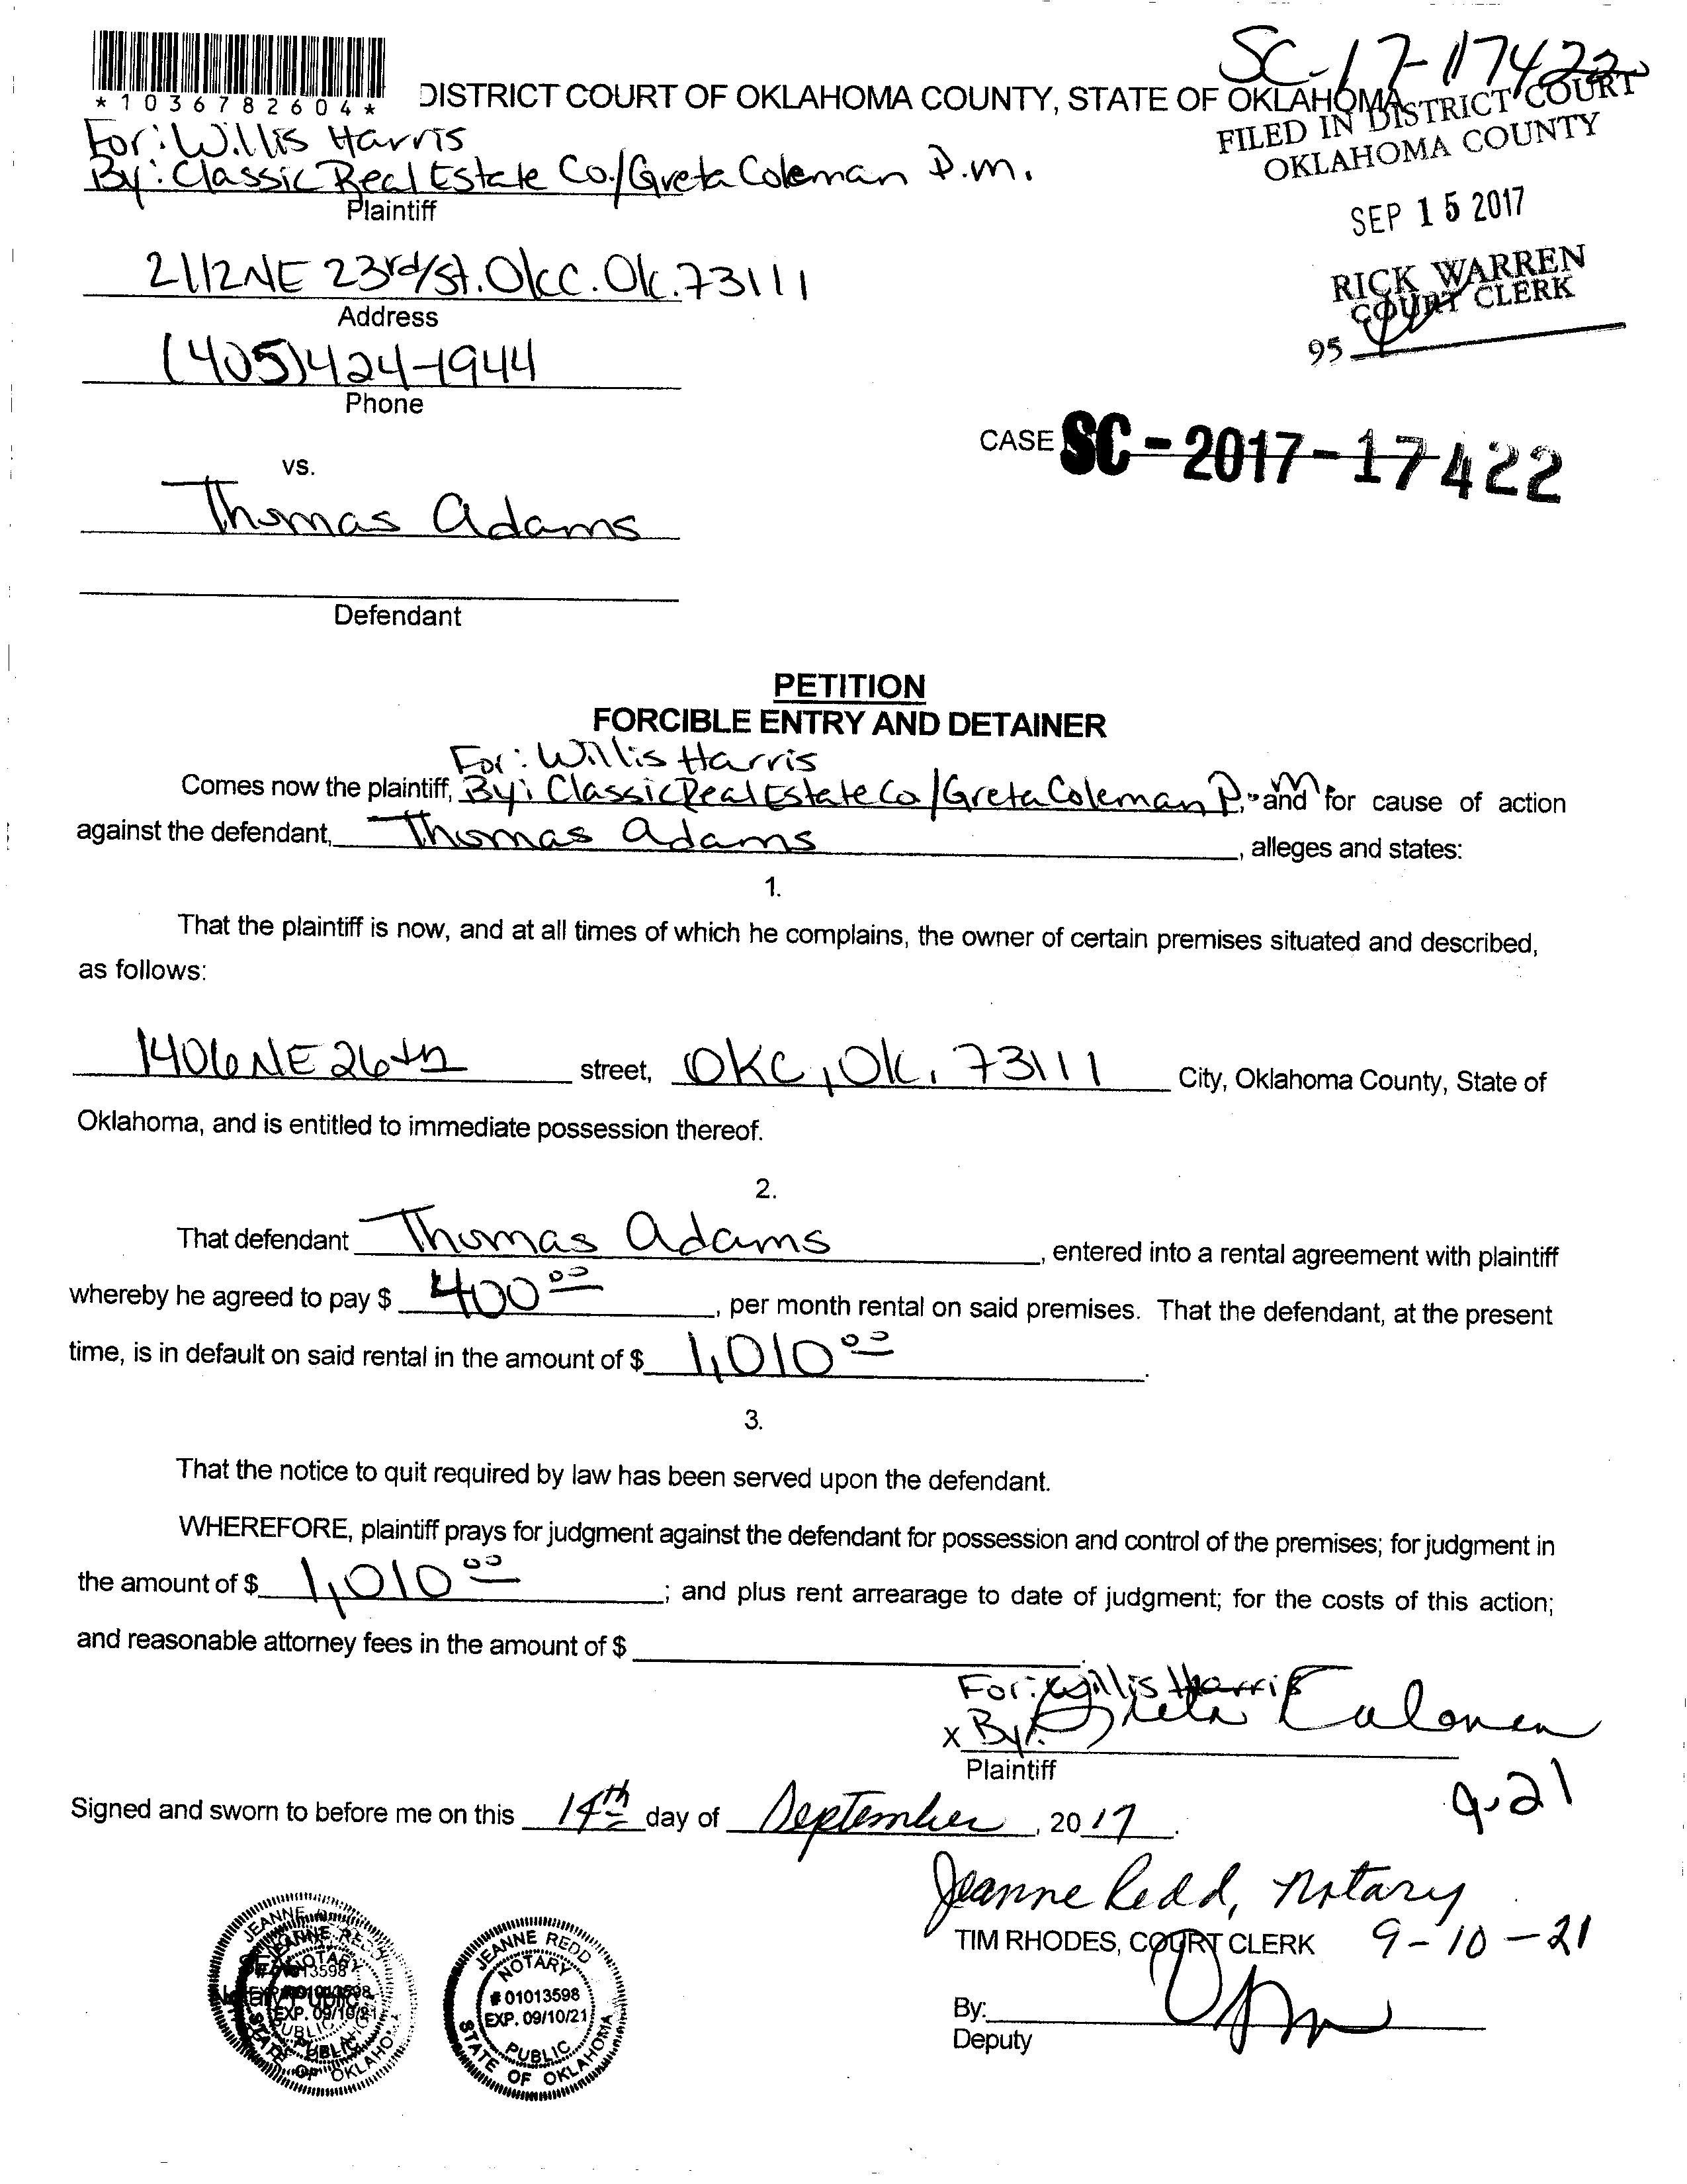 SC-17-17422
*1036782604*
DISTRICT COURT OF OKLAHOMA COUNTY, STATE OF OKLAHOMA
FILED IN DISTRICT COURT
OKLAHOMA COUNTY
For: Willis Harris
By: Classic Real Estate Co./Greta Coleman P.m.
Plaintiff
SEP 15 2017
2112 NE 23rd/St. Okc. Ok. 73111
Address
RICK WARREN
COURT CLERK
95
(405)424-1944
Phone
CASE SC-2017-17422
vs.
Thomas Adams
Defendant
PETITION
FORCIBLE ENTRY AND DETAINER
For: Willis Harris
Comes now the plaintiff, By: Classic Real Estate Co/Greta Coleman P.M, and for cause of action
against the defendant, Thomas Adams, alleges and states:
1.
That the plaintiff is now, and at all times of which he complains, the owner of certain premises situated and described,
as follows:
1406 NE 26th street, OKC, Ok. 73111 City, Oklahoma County, State of
Oklahoma, and is entitled to immediate possession thereof.
2.
That defendant Thomas Adams, entered into a rental agreement with plaintiff
whereby he agreed to pay $ 400.00, per month rental on said premises. That the defendant, at the present
time, is in default on said rental in the amount of $ 1,010.00.
3.
That the notice to quit required by law has been served upon the defendant.
WHEREFORE, plaintiff prays for judgment against the defendant for possession and control of the premises; for judgment in
the amount of $ 1,010.00; and plus rent arrearage to date of judgment; for the costs of this action;
and reasonable attorney fees in the amount of $
For: Willis Harris
x By: Greta Coleman
Plaintiff
9-21
Signed and sworn to before me on this 14th day of September, 2017.
Jeanne Redd, Notary
TIM RHODES, COURT CLERK 9-10-21
By:
Deputy
JEANNE REDD
NOTARY
# 01013598
EXP. 09/10/21
PUBLIC
STATE OF OKLAHOMA